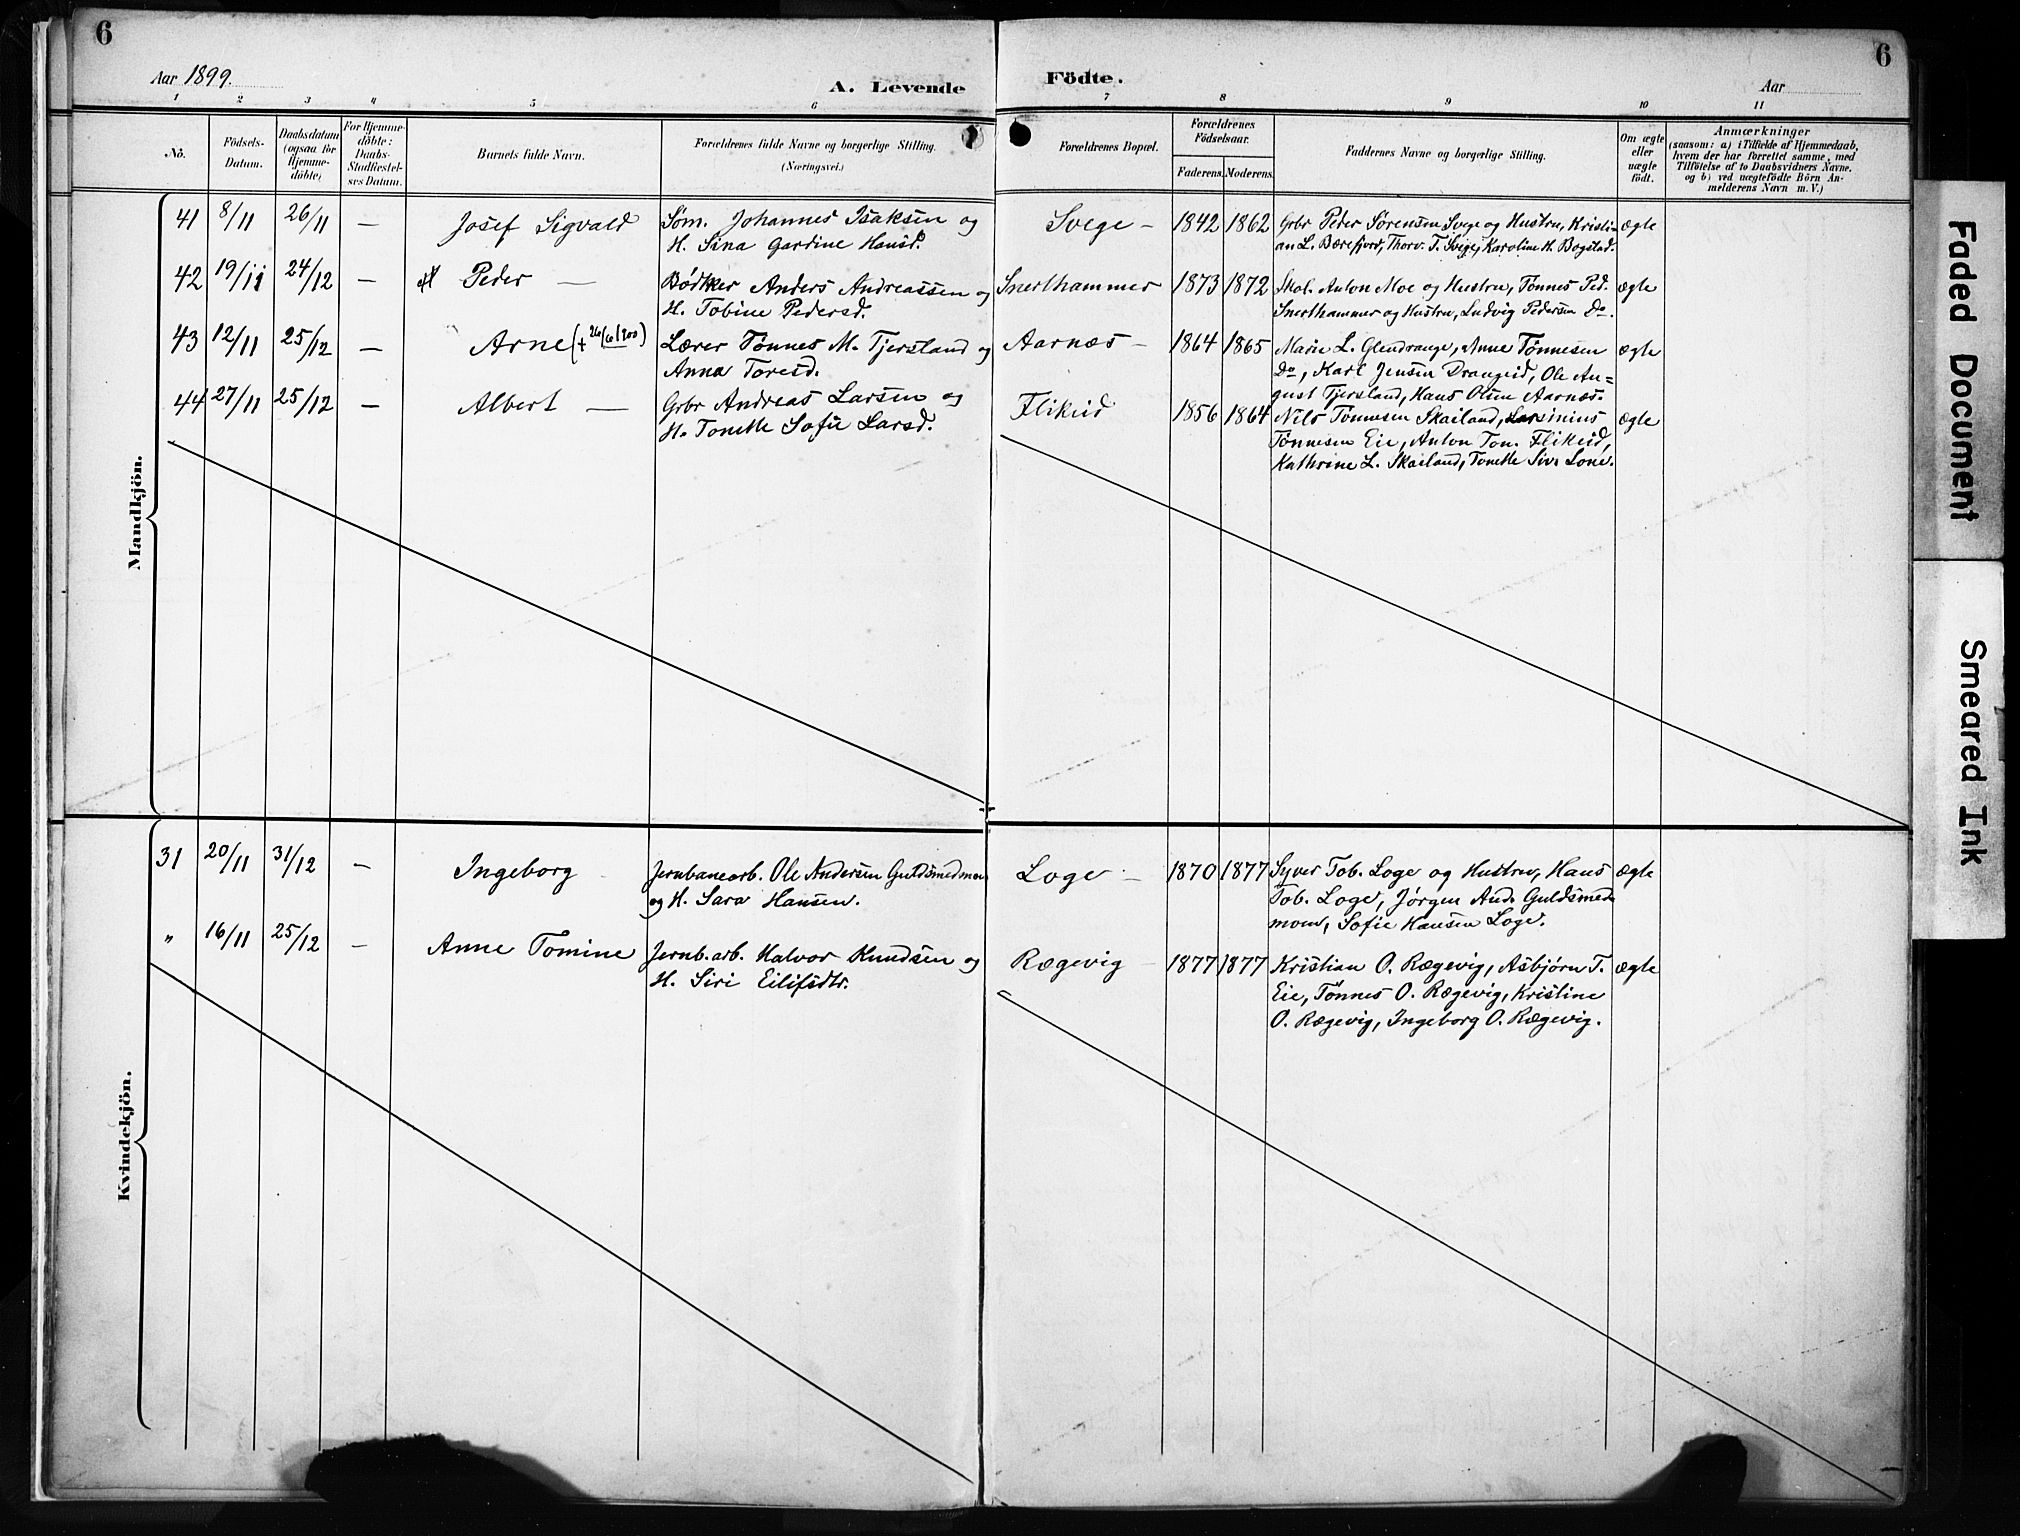 6
6
Aar 1899.
A. Levende
Födte.
Aar
1 2 3 4 5 6 7 8 9 10 11
No.
Födsels-
Datum.
Daabsdatum
(ogsaa for
Hjemme-
döbte)
For Hjemme-
döbte:
Daabs-
Stadfæstel-
ses Datum.
Barnets fulde Navn.
Forældrenes fulde Navne og borgerlige Stilling.
(Næringsvei.)
Forældrenes Bopæl.
Forældrenes
Födselsaar.
Faderens. Moderens.
Faddernes Navne og borgerlige Stilling.
Om ægte
eller
uægte
födt.
Anmærkninger
(saasom: a) i Tilfælde af Hjemmedaab,
hvem der har forrettet samme, med
Tilföielse af to Daabsvidners Navne.
og b) ved uægtefödte Börn An-
melderens Navn m. V.)
Mandkjön.
41 8/11 26/11 — Josef Sigvald
Søm. Johannes Isaksen og
H. Sina Gardine Hansd.
Svege - 1842 1862
Grbr Peder Sørensen Svege og Hustru, Kristi-
an L. Bærefjord, Thorv. T. Svege, Karoline H. Bogstad.
ægte
42 19/11 24/12 — Peder —
Bødker Anders Andreassen og
H. Tobine Pedersd.
Snerthammer 1873 1872
Skol. Anton Moe og Hustru, Tønnes Ped.
Snerthammer og Hustru, Ludvig Pedersen Do.
ægte
43 12/11 25/12 — Arne (+ 26/6/1900)
Lærer Tønnes M. Tjersland og
Anna Toresd.
Aarnæs - 1864 1865
Marie L. Glendrange, Anne Tønnesen
Do, Karl Jensen Drangeid, Ole Au=
gust Tjersland, Hans Olsen Aarnæs.
ægte
44 27/11 25/12 — Albert —
Grbr Andreas Larsen og
H. Tonette Sofie Larsd.
Flikeid 1856 1864
Nils Tønnesen Skailand, Larsinius
Tønnesen Eie, Anton Ton. Flikeid,
Kathrine L. Skailand, Tonette Siv. Lone.
ægte
Kvindekjön.
31 20/11 31/12 — Ingeborg
Jernbanearb. Ole Andersen Guldsmedmoen
og H. Sara Hansen.
Loge - 1870 1877
Syver Tob. Loge og Hustru, Hans
Tob. Loge, Jørgen And. Guldsmed-
moen, Sofie Hansen Loge.
ægte
" 16/11 25/12 — Anne Tomine
Jernb.arb. Halvor Knudsen og
H. Siri Eilifsdtr.
Rægevig - 1877 1877
Kristian O. Rægevig, Asbjørn T.
Eie, Tønnes O. Rægevig, Kristine
O. Rægevig, Ingeborg O. Rægevig.
ægte
Faded Document
Smeared Ink